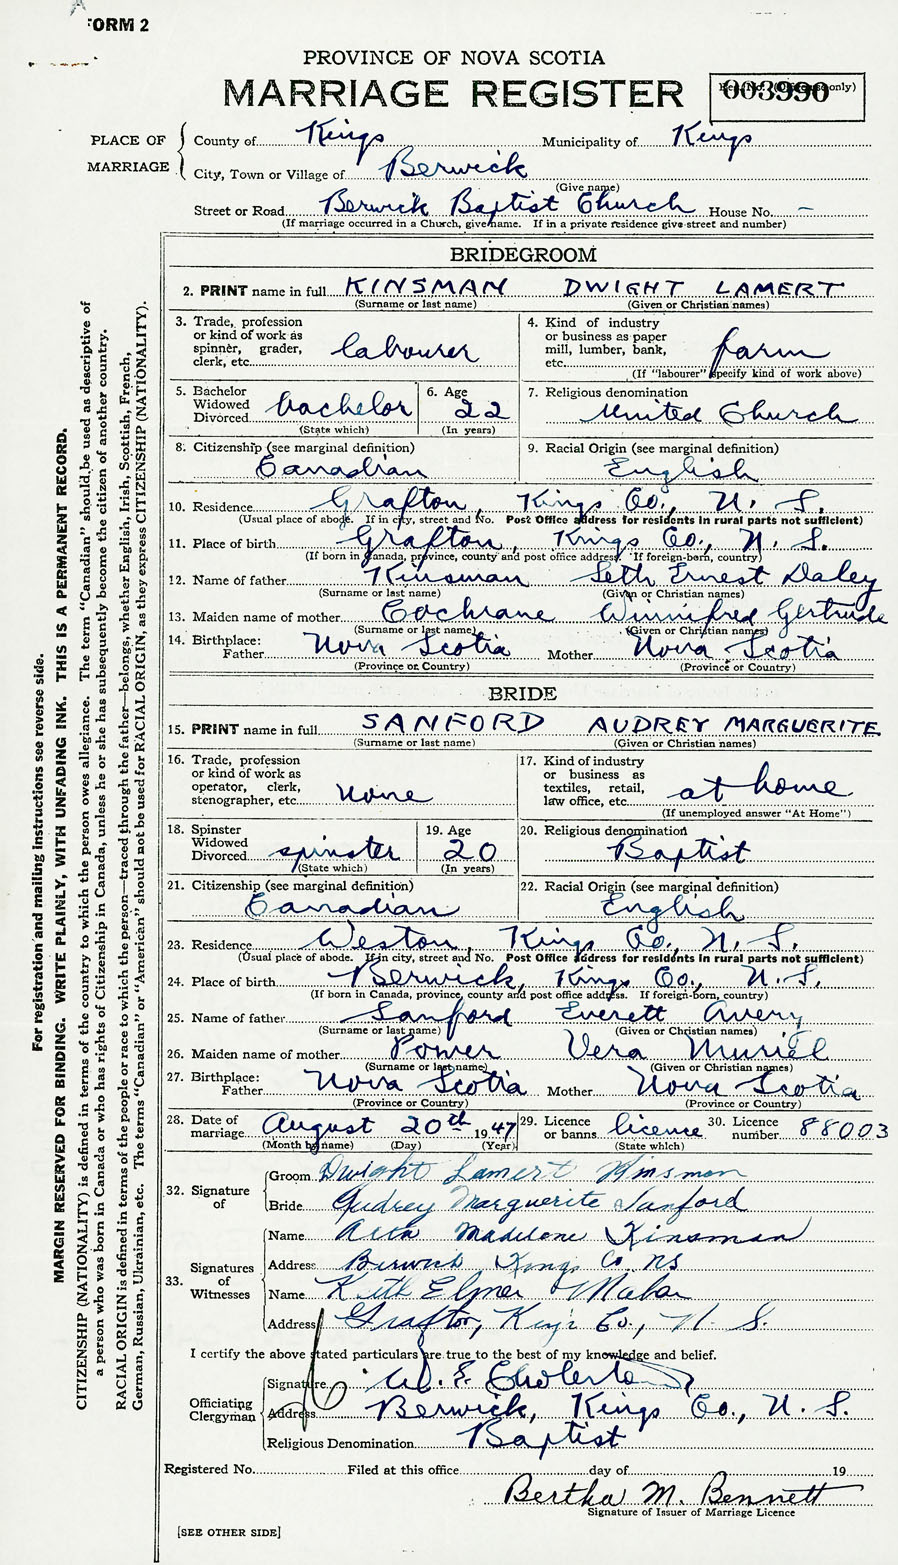 FORM 2
PROVINCE OF NOVA SCOTIA
MARRIAGE REGISTER
003990
PLACE OF MARRIAGE
County of Kings Municipality of Kings
City, Town or Village of Berwick
(Give name)
Street or Road Berwick Baptist Church House No. –
(If marriage occurred in a Church, give name. If in a private residence give street and number)
BRIDEGROOM
2. PRINT name in full KINSMAN DWIGHT LAMERT
(Surname or last name) (Given or Christian names)
3. Trade, profession or kind of work as spinner, grader, clerk, etc. labourer
4. Kind of industry or business as paper mill, lumber, bank, etc. farm
(If "labourer" specify kind of work above)
5. Bachelor Widowed Divorced bachelor
(State which)
6. Age 22
(In years)
7. Religious denomination
United Church
8. Citizenship (see marginal definition)
Canadian
9. Racial Origin (see marginal definition)
English
10. Residence Grafton, Kings Co., N. S.
(Usual place of abode. If in city, street and No. Post Office address for residents in rural parts not sufficient)
11. Place of birth Grafton, Kings Co., N. S.
(If born in Canada, province, county and post office address. If foreign-born, country)
12. Name of father Kinsman Seth Ernest Daley
(Surname or last name) (Given or Christian names)
13. Maiden name of mother Cochrane Winnifred Gertrude
(Surname or last name) (Given or Christian names)
14. Birthplace: Father Nova Scotia Mother Nova Scotia
(Province or Country) (Province or Country)
BRIDE
15. PRINT name in full SANFORD AUDREY MARGUERITE
(Surname or last name) (Given or Christian names)
16. Trade, profession or kind of work as operator, clerk, stenographer, etc. none
17. Kind of industry or business as textiles, retail, law office, etc. at home
(If unemployed answer "At Home")
18. Spinster Widowed Divorced spinster
(State which)
19. Age 20
(In years)
20. Religious denomination
Baptist
21. Citizenship (see marginal definition)
Canadian
22. Racial Origin (see marginal definition)
English
23. Residence Weston, Kings Co., N. S.
(Usual place of abode. If in city, street and No. Post Office address for residents in rural parts not sufficient)
24. Place of birth Berwick, Kings Co., N. S.
(If born in Canada, province, county and post office address. If foreign-born, country)
25. Name of father Sanford Everett Avery
(Surname or last name) (Given or Christian names)
26. Maiden name of mother Power Vera Muriel
(Surname or last name) (Given or Christian names)
27. Birthplace: Father Nova Scotia Mother Nova Scotia
(Province or Country) (Province or Country)
28. Date of marriage August 20th 1947
(Month by name) (Day) (Year)
29. Licence or banns license
(State which)
30. Licence number 88003
32. Signature of
Groom Dwight Lamert Kinsman
Bride Audrey Marguerite Sanford
33. Signatures of Witnesses
Name Madelone Kinsman
Address Berwick Kings Co NS
Name Keith Elmer
Address Grafton, Kings Co., N. S.
I certify the above stated particulars are true to the best of my knowledge and belief.
Officiating Clergyman
Signature W. E. Cholerton
Address Berwick, Kings Co., N. S.
Religious Denomination Baptist
Registered No. Filed at this office day of 19
Bertha M. Bennett
Signature of Issuer of Marriage Licence
[SEE OTHER SIDE]
For registration and mailing instructions see reverse side.
MARGIN RESERVED FOR BINDING. WRITE PLAINLY, WITH UNFADING INK. THIS IS A PERMANENT RECORD.
CITIZENSHIP (NATIONALITY) is defined in terms of the country to which the person owes allegiance. The term "Canadian" should be used as descriptive of
a person who was born in Canada or who has rights of Citizenship in Canada, unless he or she has subsequently become the citizen of another country.
RACIAL ORIGIN is defined in terms of the people or race to which the person—traced through the father—belongs, whether English, Irish, Scottish, French,
German, Russian, Ukrainian, etc. The terms "Canadian" or "American" should not be used for RACIAL ORIGIN, as they express CITIZENSHIP (NATIONALITY).